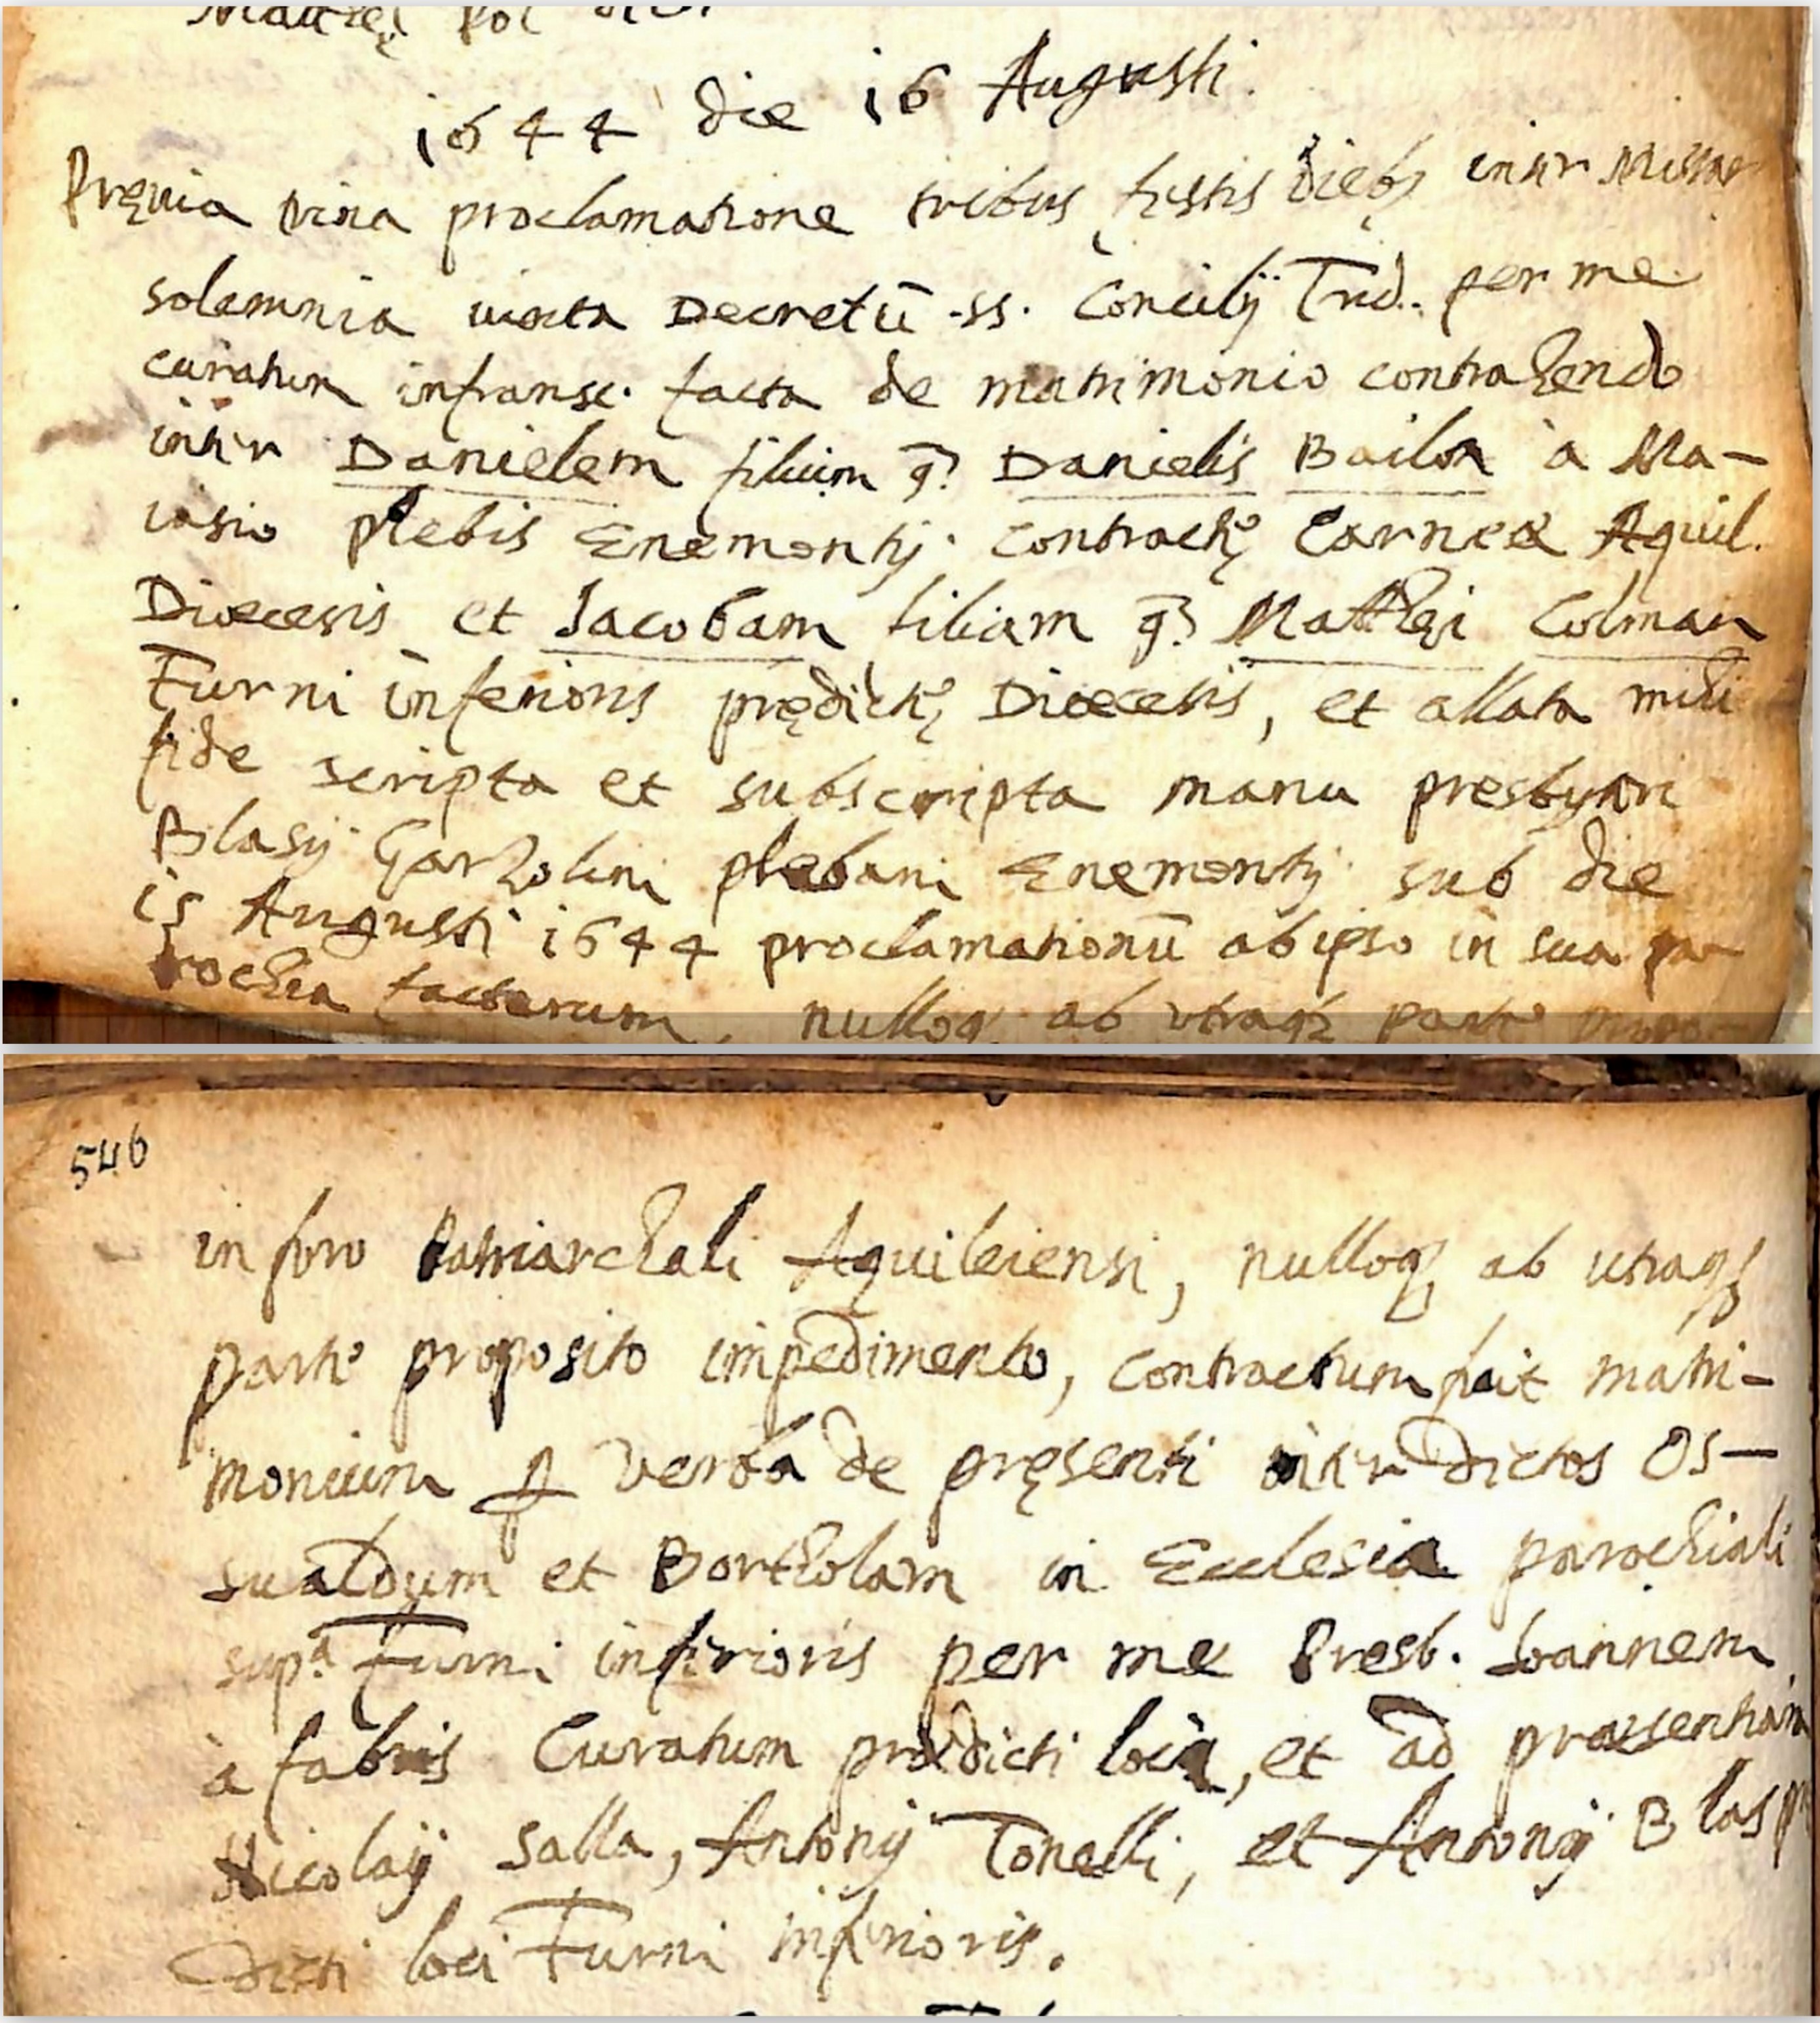 1644 die 16 Augusti.
Pręuia trina proclamatione tribus festis dieb9 inter Missar
solemnia iuxta Decretū ss. Concilij Trid. per me
curatum infransc. facta de matrimonio contrahendo
inter Danielem filium q. Danielis Bailon à Ma-
iasio plebis Enemontij contractę Carneæ Aquil.
Diœcesis et Jacobam filiam q. Matthęi Colman
Furni inferioris prędictę Diœcesis, et allata mihi
fide scripta et subscripta manu presbyteri
Blasij Garzolini plebani Enemontij sub die
15 Augusti 1644 proclamationū ab ipso in sua pa-
rochia factarum, nulloq; ab vtraq; parte propo-
546
in foro Patriarchali Aquileiensi, nulloq; ab utraq;
parte proposito impedimento, contractum fuit matri-
monium ꝑ verba de pręsenti inter dictos Os-
sualdum et Bortholam in Ecclesia parochiali
supa. Furni inferioris per me Presb. Ioannem
à fabris Curatum prædicti loci, et ad præsentiam
Nicolaij Salla, Antonij Tonelli, et Antonij
Dicti loci Furni inferioris.